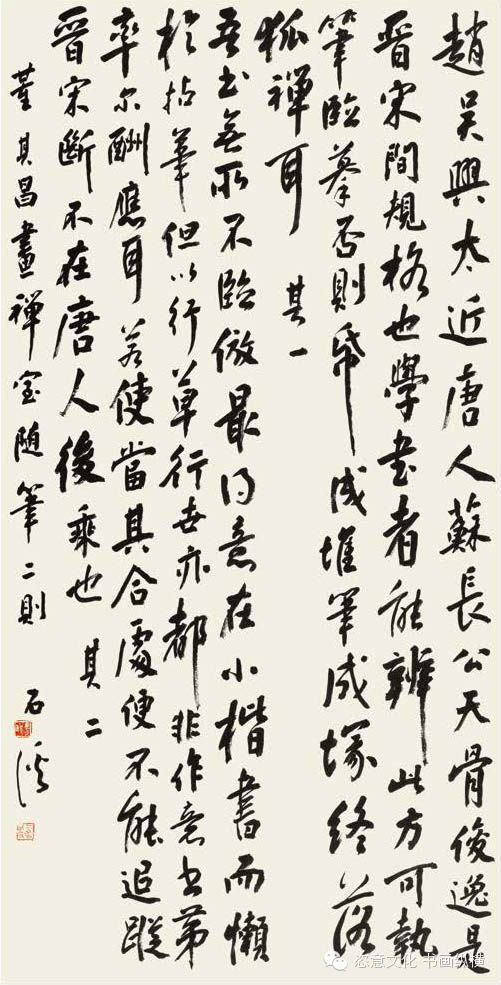 趙吳興太近唐人蘇長公天骨俊逸是
晉宋間規格也學書者能辨此方可執
筆臨摹否則紙成堆筆成塚終落
狐禪耳 其一
吾書無所不臨倣最得意在小楷書而懶
於拈筆但以行草行世亦都非作意書第
率尔酬應耳若使當其合處便不能追蹤
晉宋斷不在唐人後乘也 其二
董其昌畫禪室随筆二則 石溪
恣意文化 书画纵横